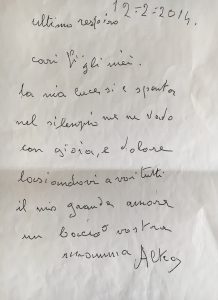 12-2-2014.
ultimo respiro
cari figli miei.
la mia luce si è spenta
nel silenzio me ne vado
con gioia, e dolore
lasciandovi a voi tutti
il mio grande amore
un bacio vostra
mamma Altea